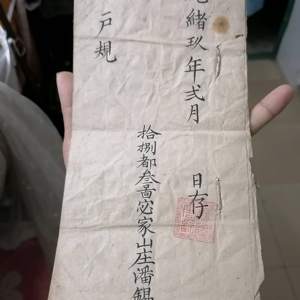 光緒玖年弍月 日存
拾捌都叁啚宓家山庄潘錫
戶規